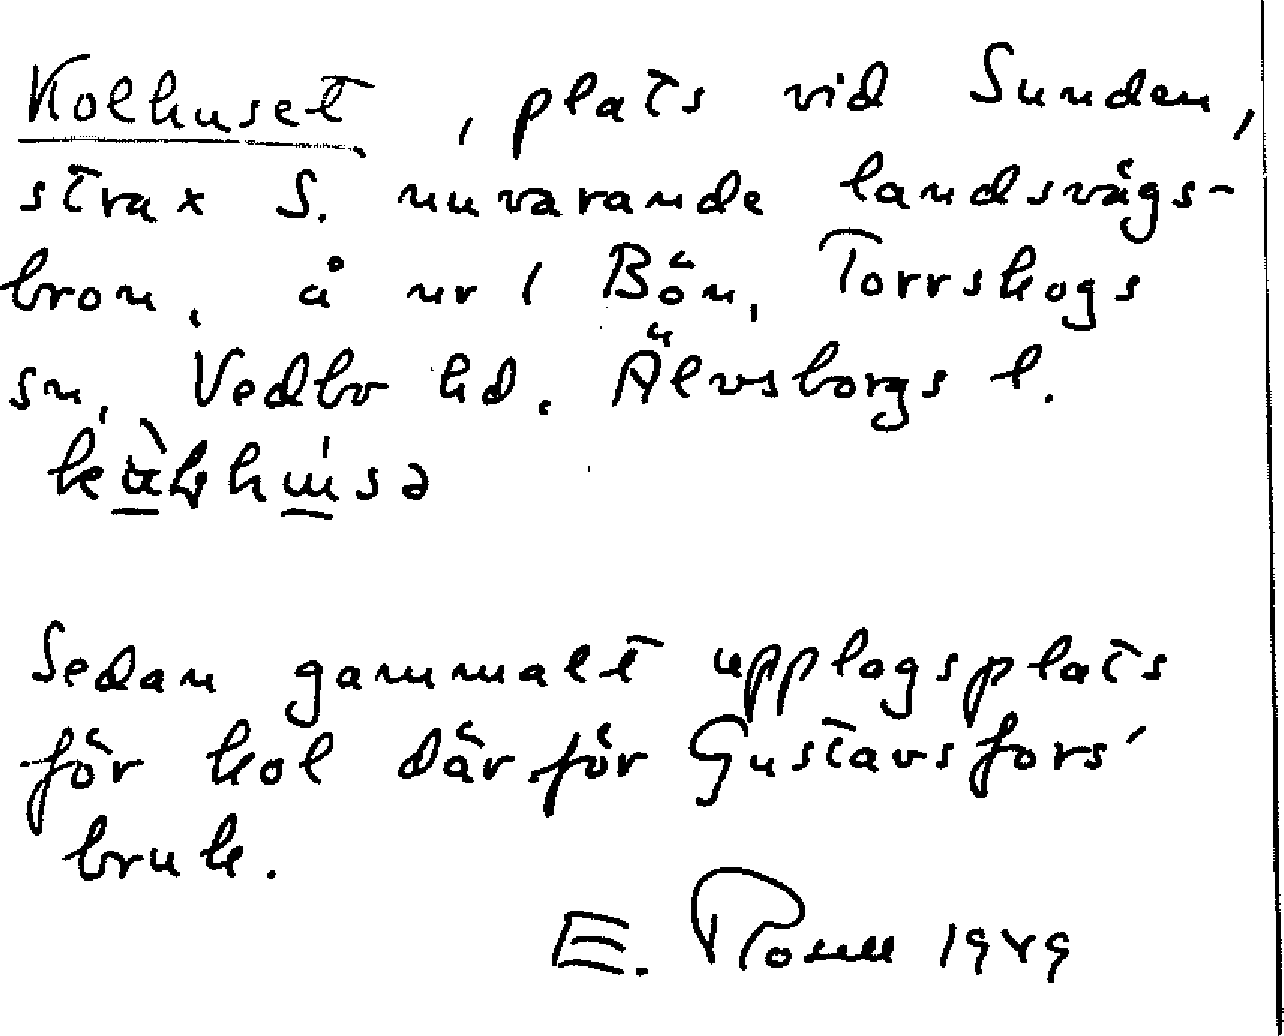 Kolhuset, plats vid Sunden,
strax S. nuvarande landsvägs-
bron, å nr 1 Bön, Torrskogs
sn, Vedbo hd. Älvsborgs l.
Sedan gammalt upplagsplats
för kol där för Gustavsfors'
bruk.
E. Rosell 1949